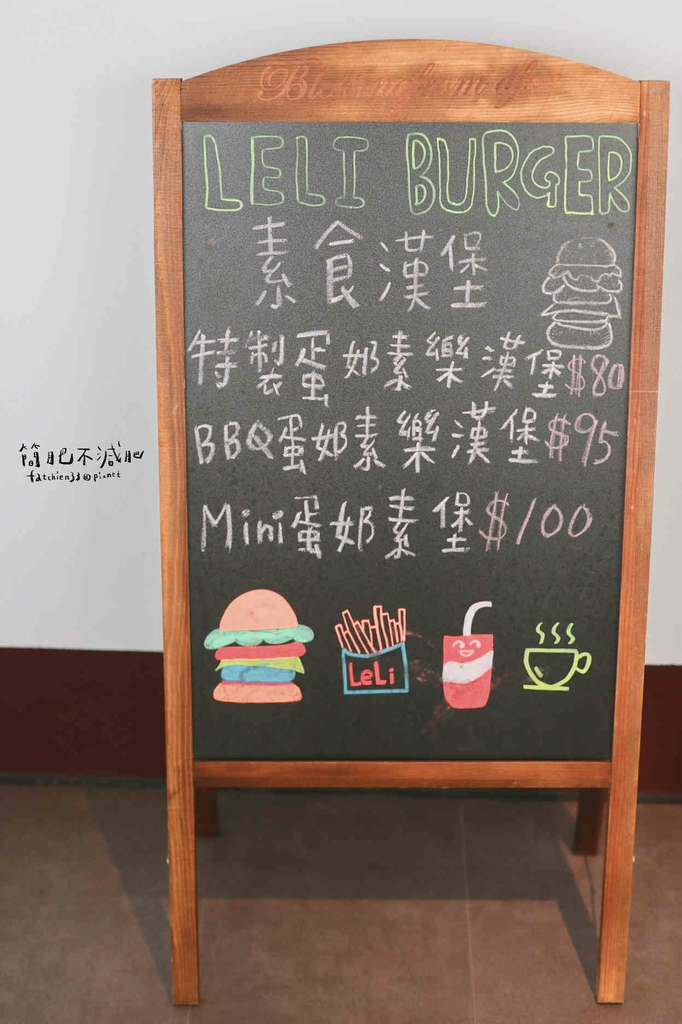 Blessing from
LELI BURGER
素食漢堡
特製蛋奶素樂漢堡$80
BBQ蛋奶素樂漢堡$95
Mini蛋奶素堡$100
LeLi
簡肥不減肥
fatchien33@pixnet